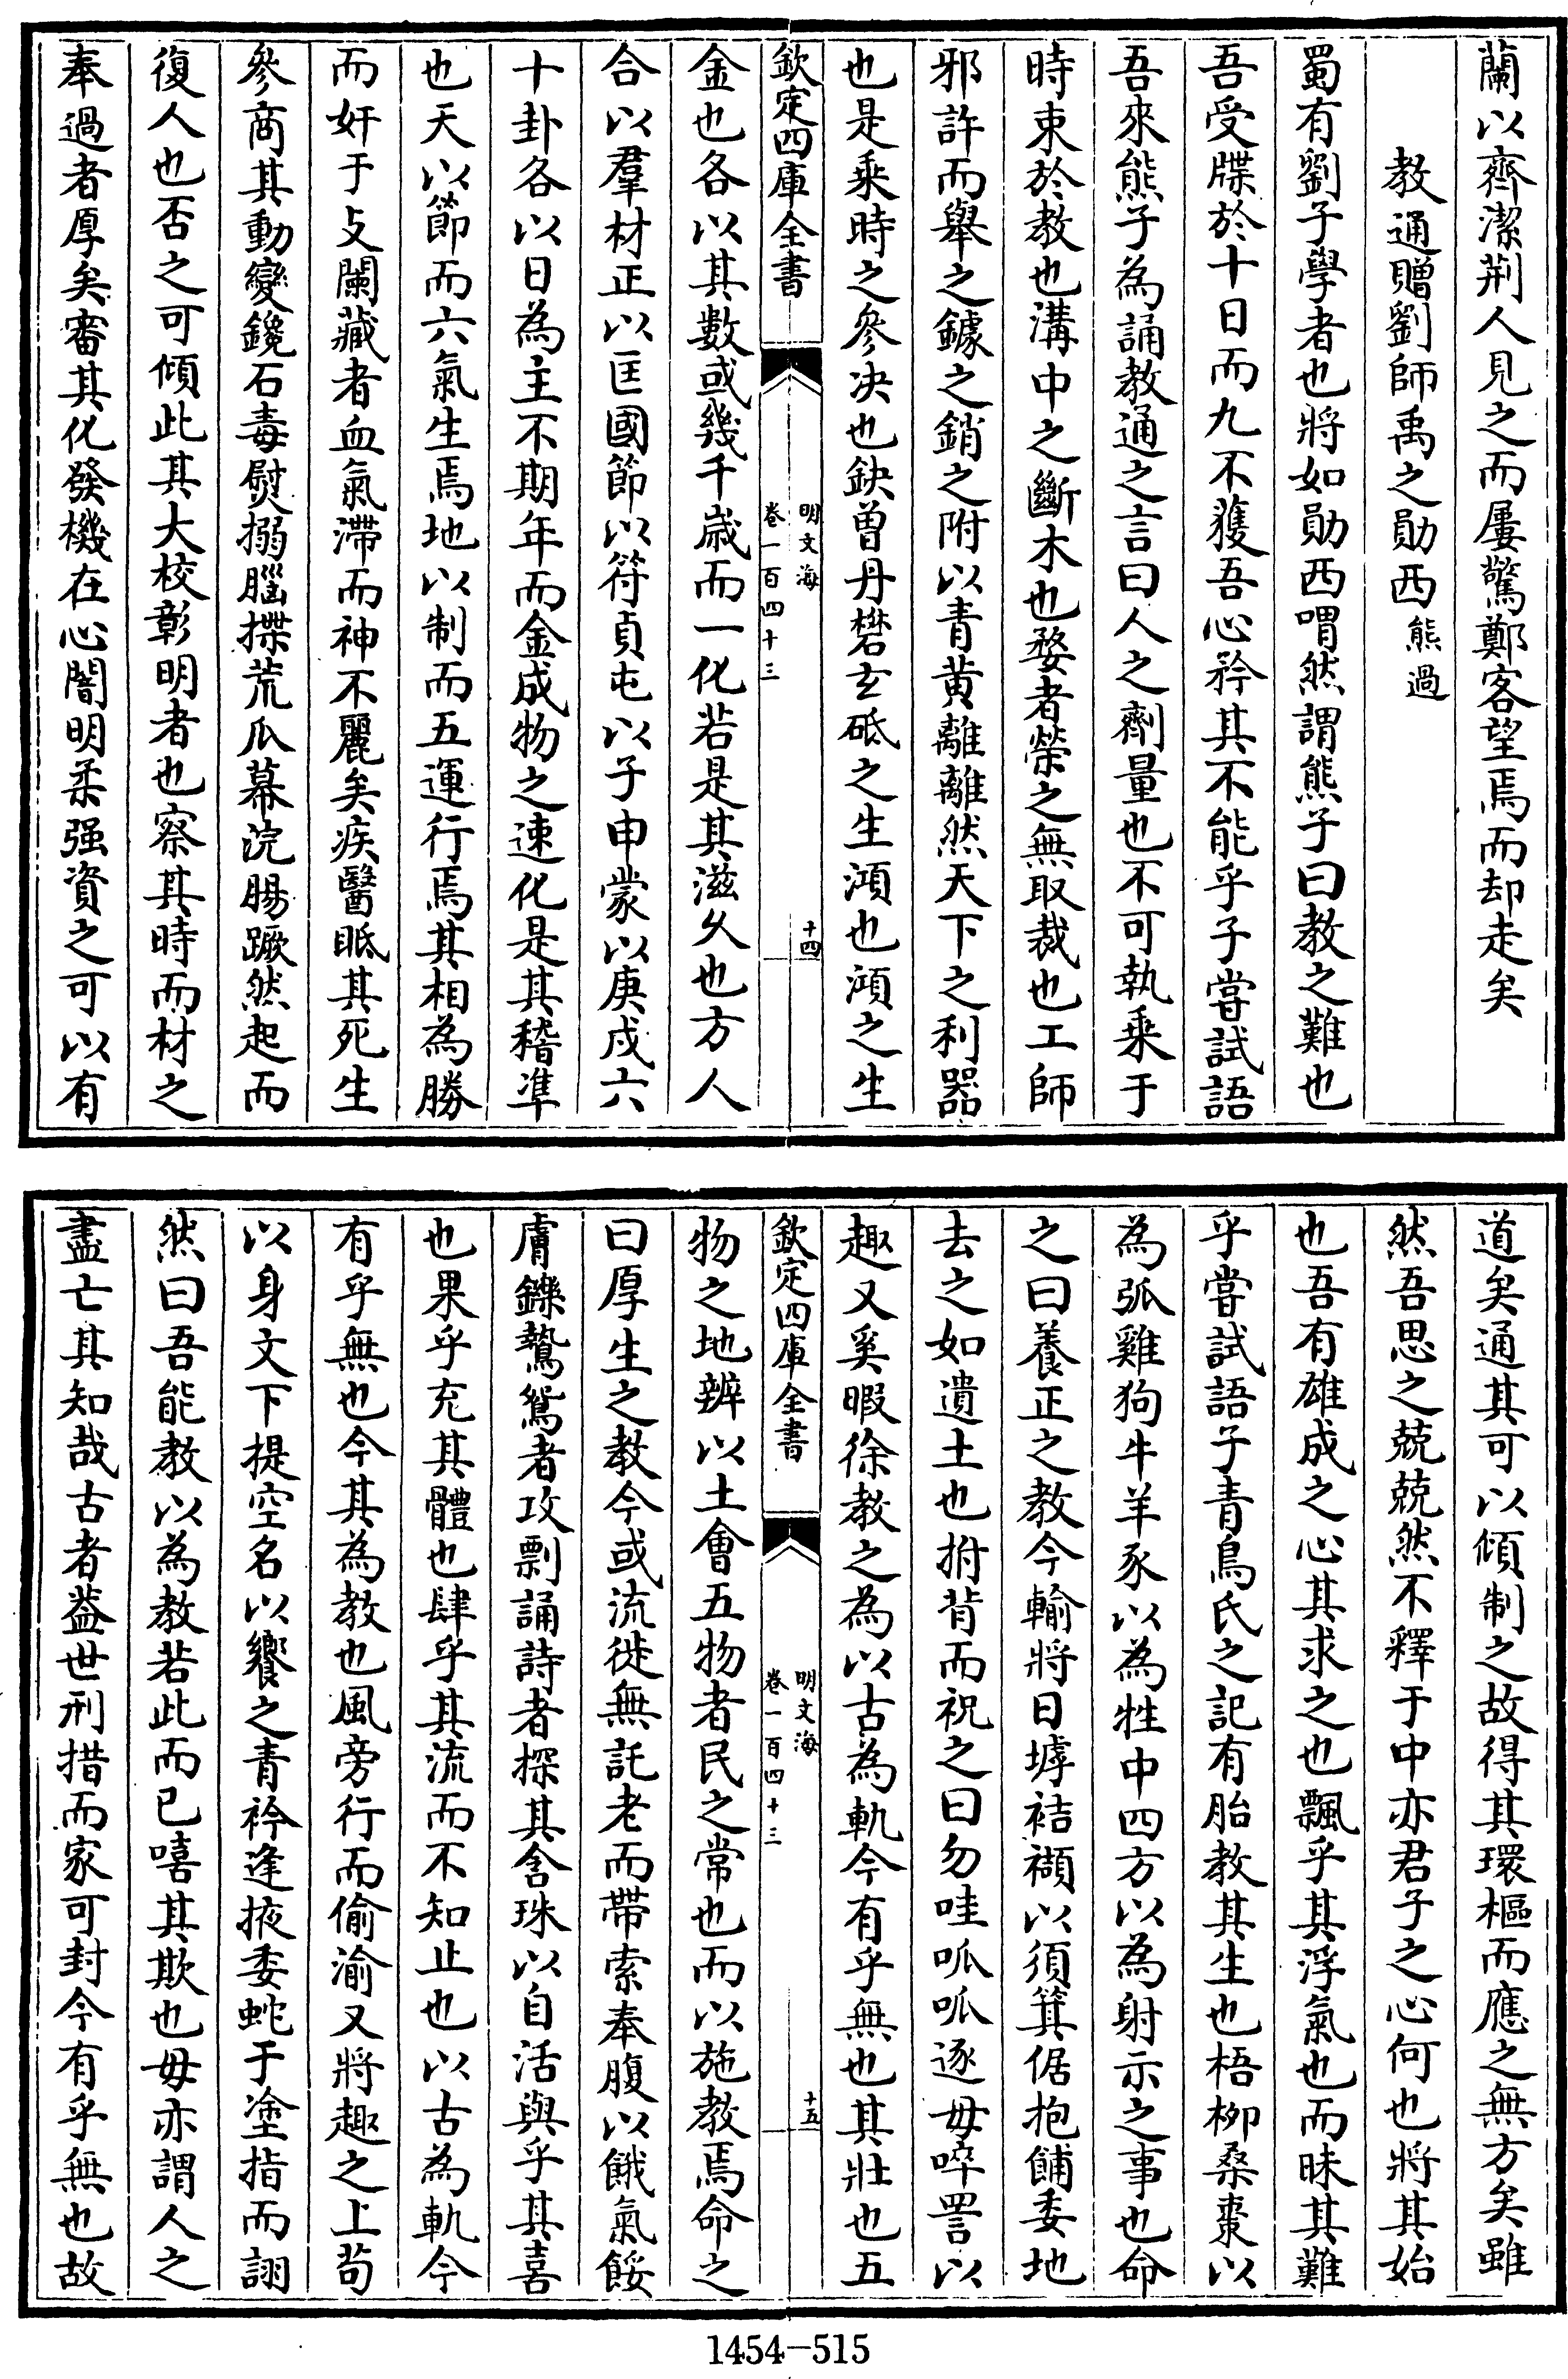 蘭以齊潔荆人見之而屢驚鄭客望焉而却走矣
教通贈劉師禹之勛西熊過
蜀有劉子學者也將如勛西喟然謂熊子曰教之難也
吾受牒於十日而九不獲吾心矜其不能乎子嘗試語
吾來熊子為誦教通之言曰人之劑量也不可執乘于
時束於教也溝中之斷木也婺者榮之無取裁也工師
邪許而舉之鐻之銷之附以青黄離離然天下之利器
也是乘時之參决也鈌曾丹礬玄砥之生澒也澒之生
欽定四庫全書
明文海
卷一百四十三
十四
金也各以其數或幾千歲而一化若是其滋久也方人
合以羣材正以匡國節以符貞屯以子申蒙以庚戌六
十卦各以日為主不期年而金成物之速化是其稽準
也天以節而六氣生焉地以制而五運行焉其相為勝
而奸于攴闌藏者血氣滯而神不麗矣疾醫眡其死生
參商其動變鑱石毒熨搦腦揲荒瓜幕浣腸蹶然起而
復人也否之可傾此其大校彰明者也察其時而材之
奉過者厚矣審其化發機在心闇明柔强資之可以有
道矣通其可以傾制之故得其環樞而應之無方矣雖
然吾思之兢兢然不釋于中亦君子之心何也將其始
也吾有雄成之心其求之也飄乎其浮氣也而昧其難
乎嘗試語子青鳥氏之記有胎教其生也梧柳桑棗以
為弧雞狗牛羊豕以為牲中四方以為射示之事也命
之曰養正之教今輸將日㙤袺襭以須箕倨抱餔委地
去之如遺土也拊背而祝之曰勿哇呱呱逐毋啐詈以
趣又奚暇徐教之為以古為軌今有乎無也其壯也五
欽定四庫全書
明文海
卷一百四十三
十五
物之地辨以土會五物者民之常也而以施教焉命之
曰厚生之教今或流徙無託老而帶索奉腹以餓氣餒
膚鑠鷙鴛者攻剽誦詩者探其含珠以自活與乎其喜
也果乎充其體也肆乎其流而不知止也以古為軌今
有乎無也今其為教也風旁行而偷渝又將趣之上苟
以身文下提空名以饗之青衿逢掖委蛇于塗指而詡
然曰吾能教以為教若此而已嘻其欺也毋亦謂人之
盡亡其知哉古者葢世刑措而家可封今有乎無也故
1454-515